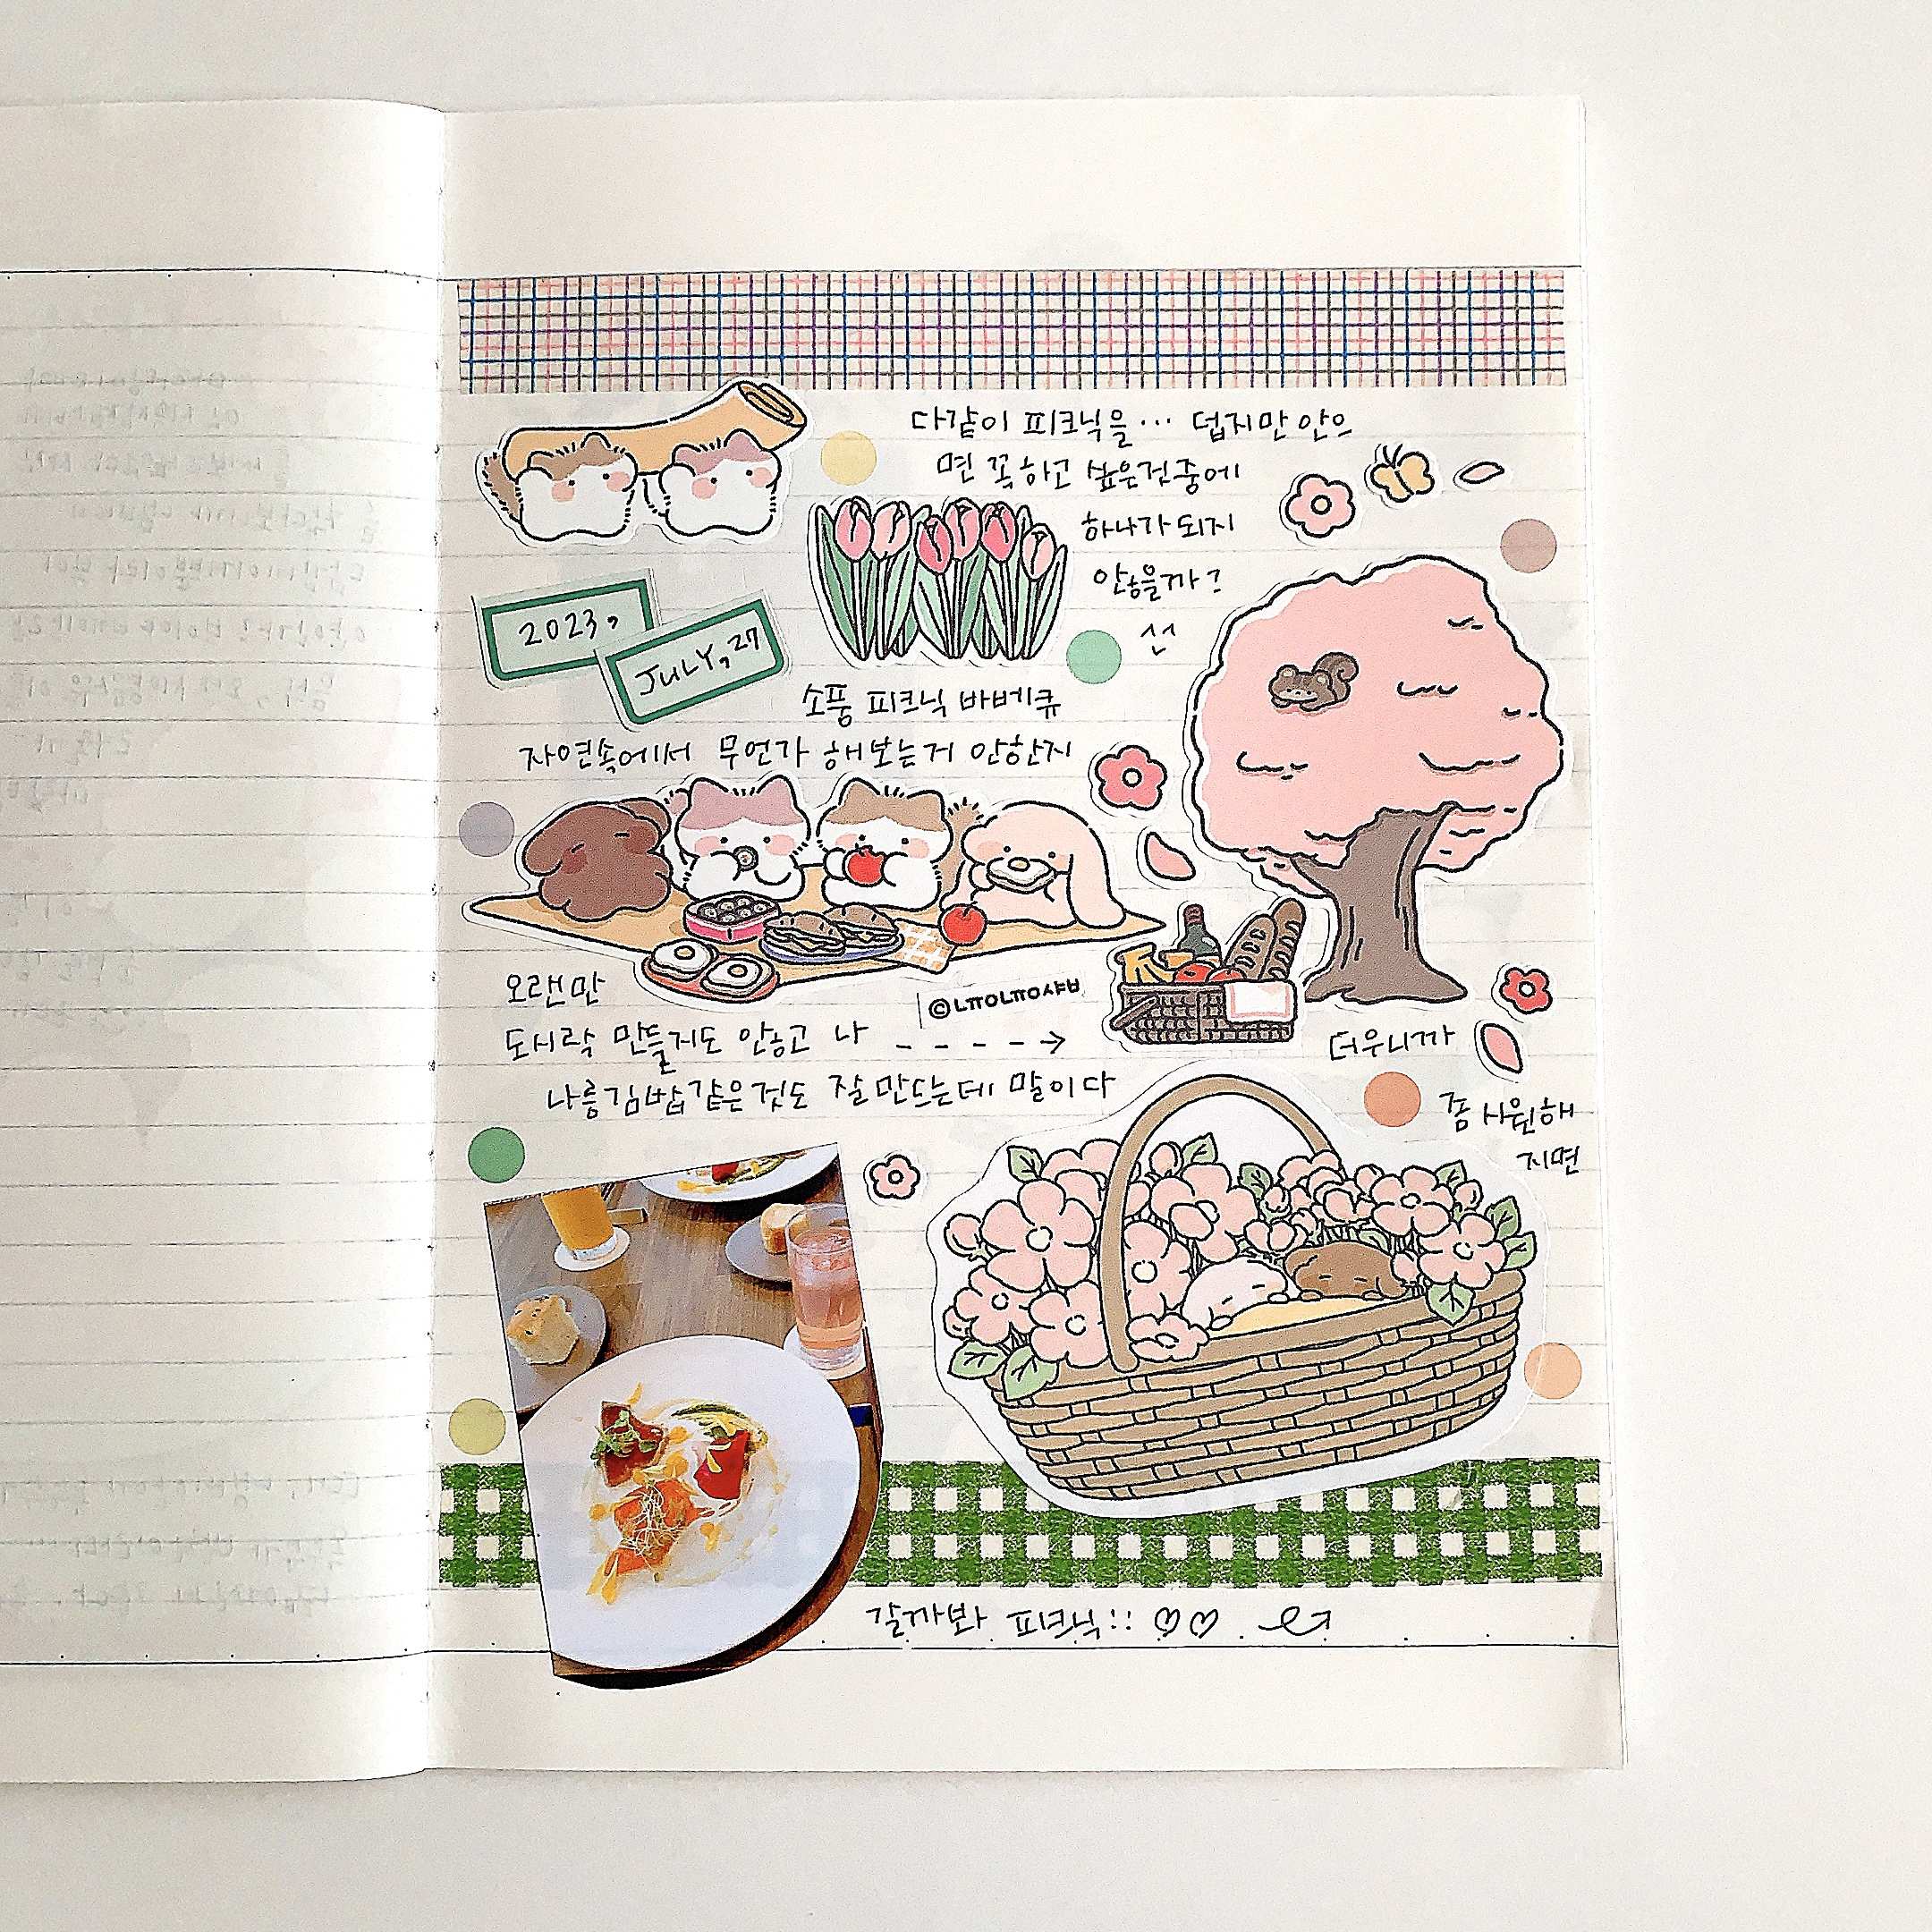 다같이 피크닉을... 덥지만 안으
면 꼭하고 싶은것중에
하나가 되지
않을까?
2023,
JULY, 27
소풍 피크닉 바베큐
자연속에서 무언가 해보는거 안한지
오랜만
©LㅠㅇLㅠㅇ샤ㅂ
도시락 만들지도 안하고 나
나름김밥같은것도 잘만드는데 말이다
더우니까
좀 시원해
지면
갈까봐 피크닉:: ♡♡